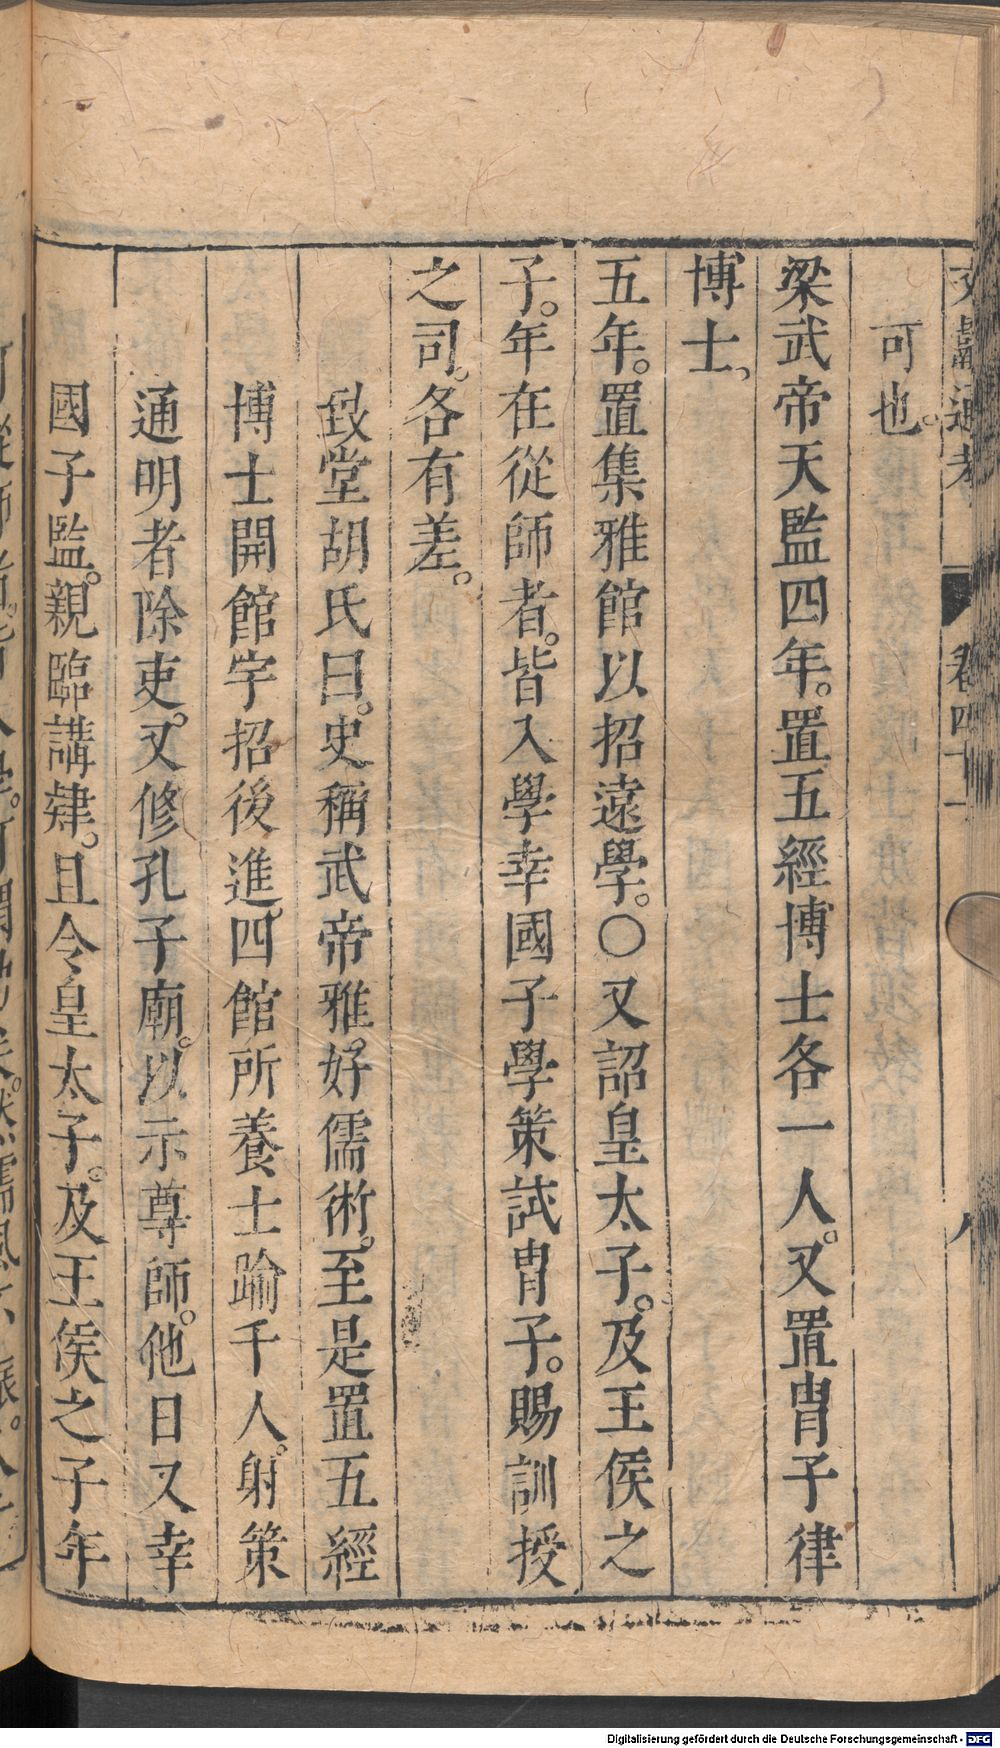 文獻通考 卷四十一 八
可也。
梁武帝天監四年。置五經博士各一人。又置胄子律
博士。
五年。置集雅館以招遠學。○又詔皇太子。及王侯之
子。年在從師者。皆入學幸國子學策試胄子。賜訓授
之司。各有差。
致堂胡氏曰。史稱武帝雅。好儒術。至是置五經
博士開館宇招後進。四館所養士踰千人。射策
通明者除吏。又修孔子廟。以示尊師。他日又幸
國子監。親臨講肄。且令皇太子。及王侯之子年
Digitalisierung gefördert durch die Deutsche Forschungsgemeinschaft - DFG